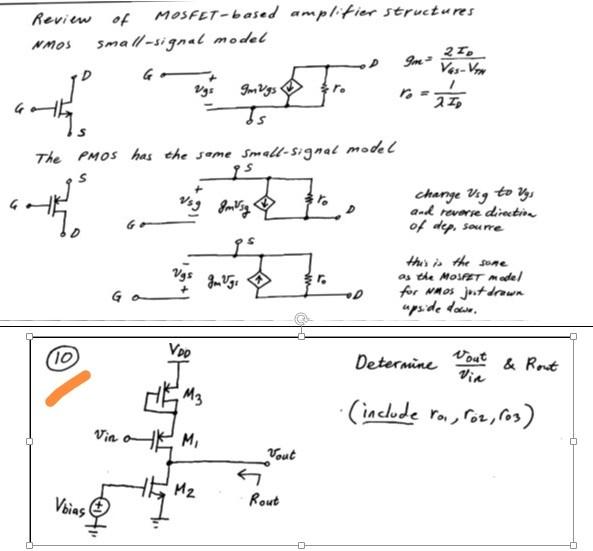 Review of MOSFET-based amplifier structures
NMOS small-signal model
G
D
S
G
+
vgs
−
gmvgs
ro
D
S
gm = 2ID / (VGS-VTH)
ro = 1 / (λID)
The PMOS has the same small-signal model
G
S
D
S
+
vsg
−
gmvsg
ro
G
D
change vsg to vgs
and reverse direction
of dep. source
S
−
vgs
+
gmvgs
ro
G
D
this is the same
as the MOSFET model
for NMOS just drawn
upside down.
10
VDD
M3
Vin
M1
Vout
M2
Rout
Vbias
+
Determine vout/vin & Rout
(include ro1, ro2, ro3)